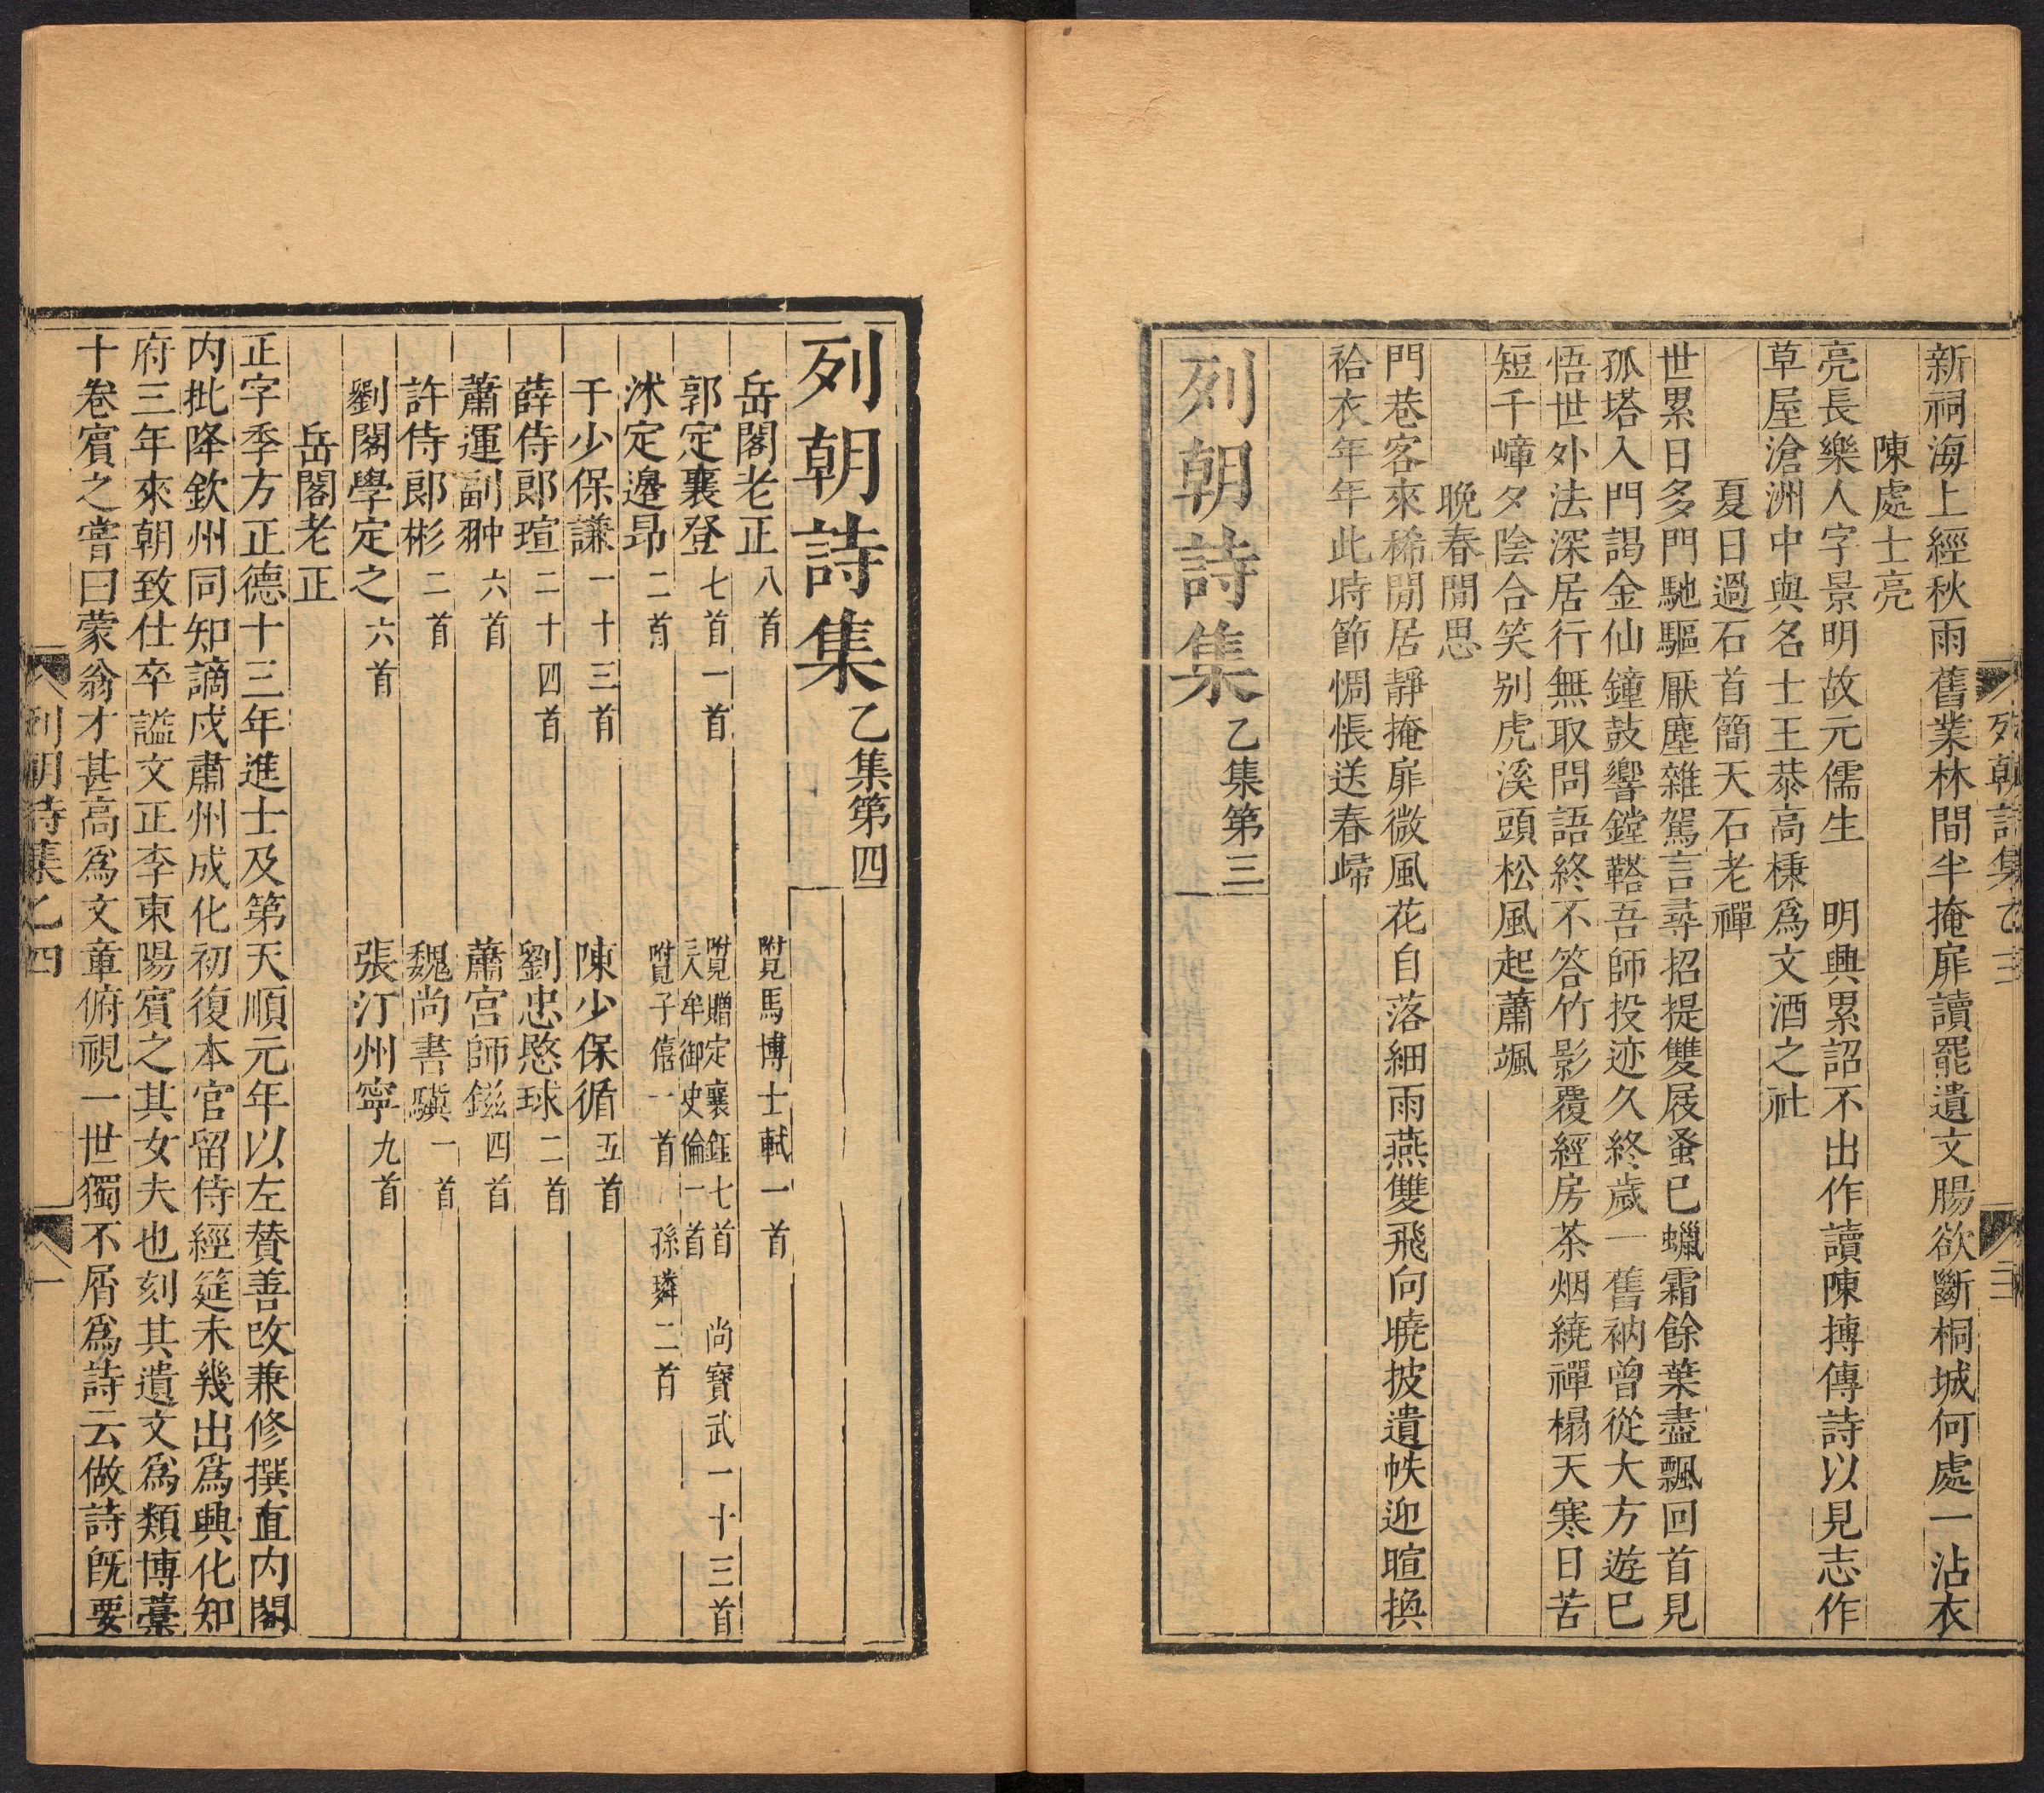 列朝詩集 乙三 三
新祠海上經秋雨舊業林間半掩扉讀罷遺文腸欲斷桐城何處一沾衣
陳處士亮
亮長樂人字景明故元儒生 明興累詔不出作讀陳摶傳詩以見志作
草屋滄洲中與名士王恭高棅爲文酒之社
夏日過石首簡天石老禪
世累日多門馳驅厭塵雜駕言尋招提雙屐蚤已蠟霜餘葉盡飄回首見
孤塔入門謁金仙鐘鼓響鏜鞳吾師投迹久終歲一舊衲曾從大方遊巳
悟世外法深居行無取問語終不答竹影覆經房茶烟繞禪榻天寒日苦
短千嶂夕陰合笑别虎溪頭松風起蕭颯
晚春閒思
門巷客來稀閒居靜掩扉微風花自落細雨燕雙飛向曉披遺帙迎暄換
袷衣年年此時節惆悵送春歸
列朝詩集 乙集第三
列朝詩集 乙集第四
岳閣老正 八首 附見馬博士軾一首
郭定襄登 七首一首 附見贈定襄鈺七首 尚寶武一十三首 三人牟御史倫一首
沐定邊昂 二首 附見子僖一首 孫璘二首
于少保謙 一十三首 陳少保循 五首
薛侍郎瑄 二十四首 劉忠愍球 二首
蕭運副翀 六首 蕭宮師鎡 四首
許侍郎彬 二首 魏尚書驥 一首
劉閣學定之 六首 張汀州寧 九首
岳閣老正
正字季方正德十三年進士及第天順元年以左贊善改兼修撰直内閣
内批降欽州同知謫戍肅州成化初復本官留侍經筵未幾出爲興化知
府三年來朝致仕卒謚文正李東陽賓之其女夫也刻其遺文爲類博藁
十卷賓之嘗曰蒙翁才甚高爲文章俯視一世獨不屑爲詩云做詩旣要
列朝詩集 乙四 一